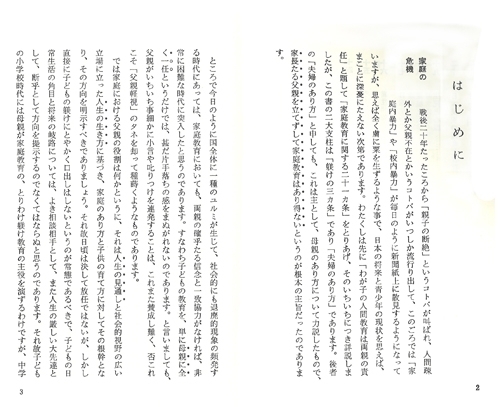 はじめに
家庭の
危機
戦後二十年たったころから「親子の断絶」というコトバが叫ばれ、人間疎
外とか父親不在とかいうコトバがいつしか流行り出して、このごろでは「家
庭内暴力」や「校内暴力」が毎日のように新聞紙上に散見するようになって
いますが、思えば全く膚に粟を生ずるような事で、日本の将来と青少年の現状を思えば、
まことに深憂にたえない次第であります。わたくしは先に「わが子の人間教育は両親の責
任」と題して「家庭教育に関する二十一カ条」をとりあげ、そのいちいちにつき詳説しま
したが、この書の二大支柱は「躾けの三カ条」であり「夫婦のあり方」であります。後者
の「夫婦のあり方」と申しても、これは主として、母親のあり方について力説したもので、
家長たる父親を立てずして家庭教育はあり得ないというのが根本の主旨だったのでありま
す。
ところで今日のように国全体に一種のユルミが生じて、社会的にも退廃的現象の頻発す
る時代にあっては、家庭教育においても、両親の確乎たる信念と一致協力がなければ、非
常に困難な時代に突入したと思うのであります。すなわち子どもの教育を、単に母親に全
く一任というだけでは、甚だ片手落ちの感をまぬかれないのであります。と言いましても、
父親がいちいち事細かに小言や叱りつけを連発することは、これまた賛成し難く、否これ
こそ「父親軽視」のタネを却って種蒔くようなものであります。
では家庭における父親の役割は何かというに、それは人生の見通しと社会的視野の広い
立場に立った人生の生き方に基づき、家庭のあり方と子供の育て方に対してその根幹とな
り、その方向を明示すべきでありましょう。それ故日頃は決して放任ではないが、しかし
直接に子どもの躾けにとやかく口出しはしないというのが常態であるべきで、子どもの日
常生活の角目と将来の岐路については、よき相談相手として、また人生の厳しい大先達と
して、断乎として方向を提示するのでなくてはならぬと思うのであります。それ故子ども
の小学校時代には母親が家庭教育の、とりわけ躾け教育の主役を演ずるわけですが、中学
2
3